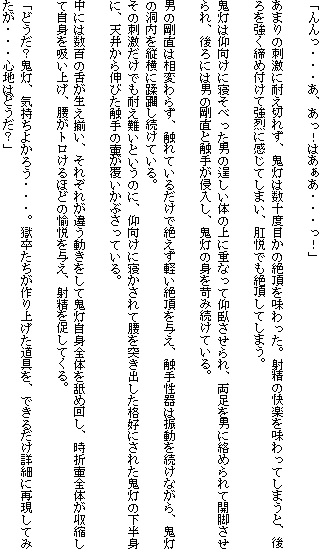 「んんっ・・あ、あっ！はあぁあ・・・っ！」
あまりの刺激に耐え切れず、鬼灯は数十度目かの絶頂を味わった。射精の快楽を味わってしまうと、後
ろを強く締め付けて強烈に感じてしまい、肛悦でも絶頂してしまう。
鬼灯は仰向けに寝そべった男の逞しい体の上に重なって仰臥させられ、両足を男に絡められて開脚させ
られ、後ろには男の剛直と触手が侵入し、鬼灯の身を苛み続けている。
男の剛直は相変わらず、触れているだけで絶えず軽い絶頂を与え、触手性器は振動を続けながら、鬼灯
の洞内を縦横に蹂躙し続けている。
その刺激だけでも耐え難いというのに、仰向けに寝かされて腰を突き出した格好にされた鬼灯の下半身
に、天井から伸びた触手の壷が覆いかぶさっている。
中には数百の舌が生え揃い、それぞれが違う動きをして鬼灯自身全体を舐め回し、時折壷全体が収縮し
て自身を吸い上げ、腰がトロけるほどの愉悦を与え、射精を促してくる。
「どうだ？鬼灯、気持ちよかろう・・・。獄卒たちが作り上げた道具を、できるだけ詳細に再現してみ
たが・・・心地はどうだ？」